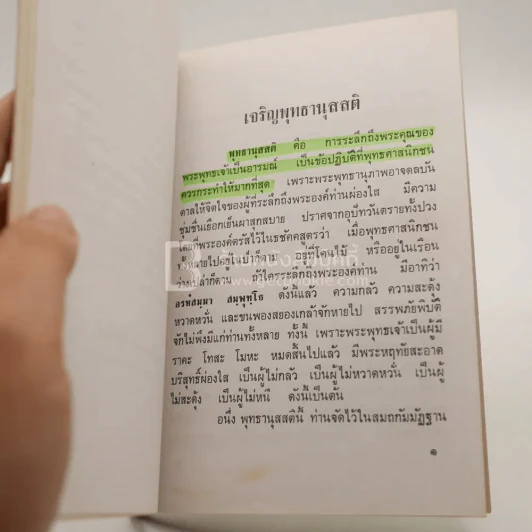 เจริญพุทธานุสสติ
พุทธานุสสติ คือ การระลึกถึงพระคุณของ
พระพุทธเจ้าเป็นอารมณ์ เป็นข้อปฏิบัติที่พุทธศาสนิกชน
ควรกระทำให้มากที่สุด เพราะพระพุทธานุภาพอาจดลบัน
ดาลให้จิตใจของผู้ที่ระลึกถึงพระองค์ท่านผ่องใส มีความ
ชุ่มชื่นเยือกเย็นผาสุกสบาย ปราศจากอุปัทวันตรายทั้งปวง
โดยที่พระองค์ตรัสไว้ในธชัคคสูตรว่า เมื่อพุทธศาสนิกชน
ทั้งหลายไปอยู่ในป่าก็ตาม อยู่ที่โคนไม้ หรืออยู่ในเรือน
ว่างเปล่าก็ตาม ถ้าใครระลึกถึงพระองค์ท่าน มีอาทิว่า
อรหํสมฺมา สมฺพุทฺโธ ดังนี้แล้ว ความกลัว ความสะดุ้ง
หวาดหวั่น และขนพองสยองเกล้าจักหายไป สรรพภัยพิบัติ
จักไม่พึงมีแก่ท่านทั้งหลาย ทั้งนี้ เพราะพระพุทธเจ้าเป็นผู้มี
ราคะ โทสะ โมหะ หมดสิ้นไปแล้ว มีพระหฤทัยสะอาด
บริสุทธิ์ผ่องใส เป็นผู้ไม่กลัว เป็นผู้ไม่หวาดหวั่น เป็นผู้
ไม่สะดุ้ง เป็นผู้ไม่หนี ดังนี้เป็นต้น
อนึ่ง พุทธานุสสตินี้ ท่านจัดไว้ในสมถกัมมัฏฐาน
๑